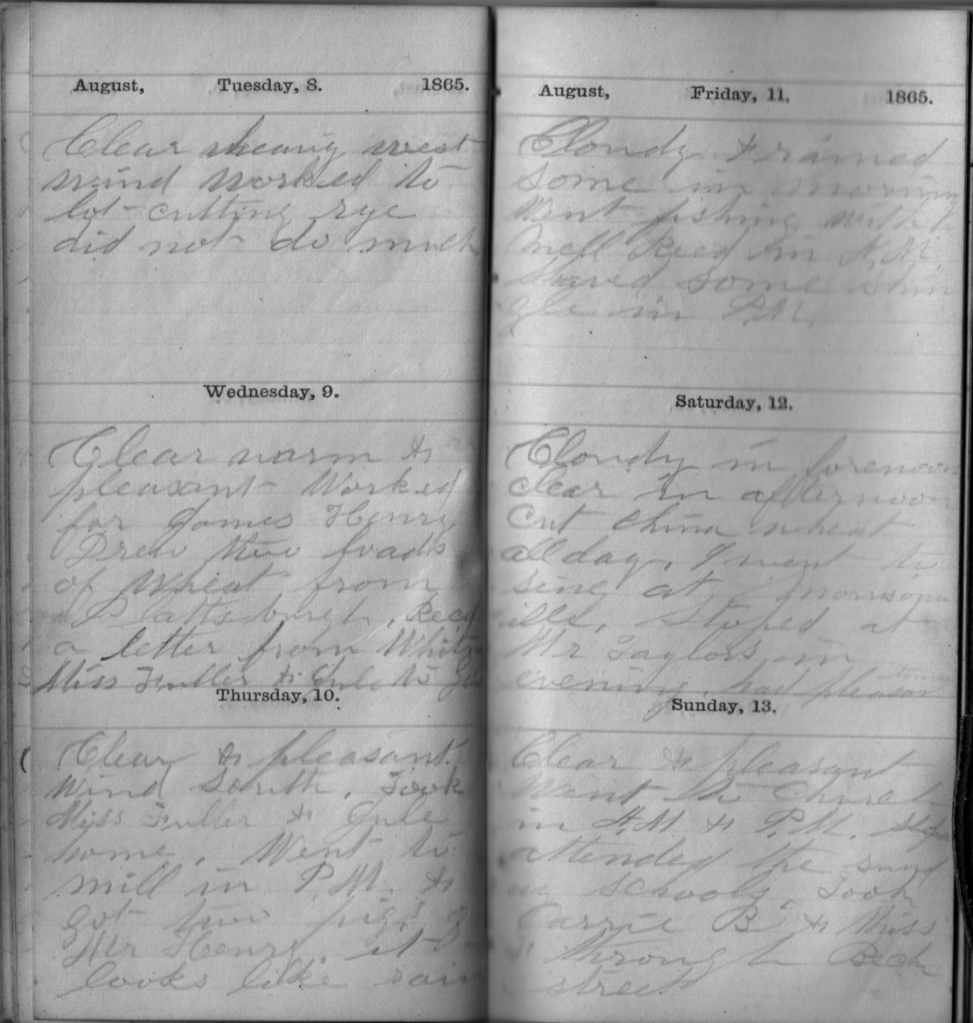 August, Tuesday, 8. 1865.
Clear heavy west
wind worked to
lot cutting rye
did not do much
Wednesday, 9.
Clear warm &
pleasant Worked
for James Henry
Drew two loads
of Wheat from
Plattsburgh, Recd
a letter from
Miss Fuller &
Thursday, 10.
Clear & pleasant.
Wind South, Took
Miss Fuller &
home, Went to
mill in P.M. &
got two pigs of
Mr Henry. it
looks like rain
August, Friday, 11, 1865.
Cloudy & rained
some in morning
Went fishing with
Reed in A.M.
Shaved some shin
gle in P.M.
Saturday, 12.
Cloudy in forenoon
clear in afternoon
cut china wheat
all day. I went to
sing at morrisonv
ille, Stoped at
Mr Taylors in
evening, had pleasant
Sunday, 13.
Clear & pleasant
Went to Church
in A.M & P.M.
attended the
schools, Took
Carrie B & Miss
through Beek
street